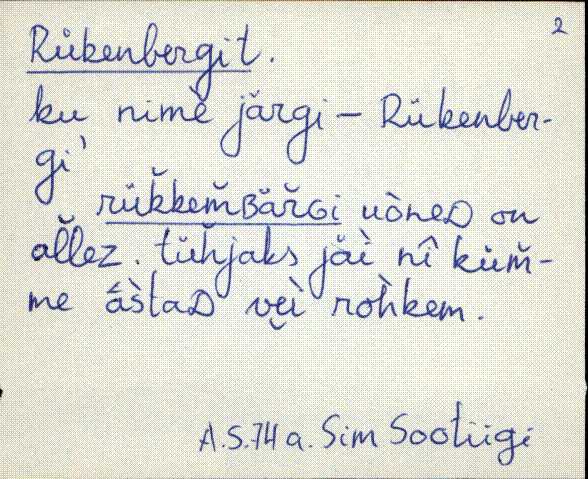 2
Rükenbergit.
ku nime järgi – Rükenber-
gi'
rük̆kem̆ʙäřɢi uòneᴅ on
al̆l̆ez. tüh̆jaks jäi nî küm̆-
me áàstaᴅ vei roh̀kem.
A.S. 74 a. Sim Sootiigi